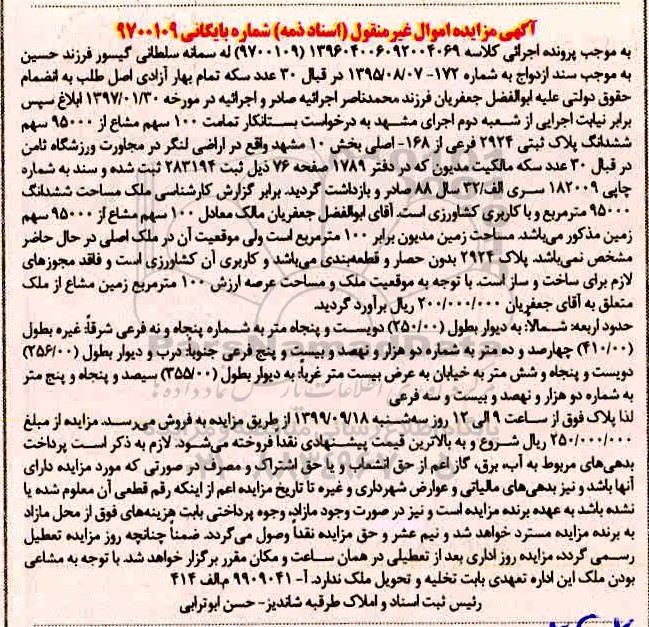 آگهی مزایده اموال غیر منقول (اسناد ذمه) شماره بایگانی ۹۷۰۰۱۰۹
به موجب پرونده اجرائی کلاسه ۱۳۹۶۰۴۰۰۶۰۹۲۰۰۴۰۶۹ (۹۷۰۰۱۰۹) له سمانه سلطانی گیسور فرزند حسین
به موجب سند ازدواج به شماره ۱۷۲- ۱۳۹۵/۰۸/۰۷ در قبال ۳۰ عدد سکه تمام بهار آزادی اصل طلب به انضمام
حقوق دولتی علیه ابوالفضل جعفریان فرزند محمدناصر اجرائیه صادر و اجرائیه در مورخه ۱۳۹۷/۰۱/۳۰ ابلاغ سپس
برابر نیابت اجرایی از شعبه دوم اجرای مشهد به درخواست بستانکار تمامت ۱۰۰ سهم مشاع از ۹۵۰۰۰ سهم
ششدانگ پلاک ثبتی ۲۹۲۴ فرعی از ۱۶۸- اصلی بخش ۱۰ مشهد واقع در اراضی لنگر در مجاورت ورزشگاه ثامن
در قبال ۳۰ عدد سکه مالکیت مدیون که در دفتر ۱۷۸۹ صفحه ۷۶ ذیل ثبت ۲۸۳۱۹۴ ثبت شده و سند به شماره
چاپی ۱۸۲۰۰۹ سری الف/۳۲ سال ۸۸ صادر و بازداشت گردید. برابر گزارش کارشناسی ملک مساحت ششدانگ
۹۵۰۰۰ مترمربع و با کاربری کشاورزی است. آقای ابوالفضل جعفریان مالک معادل ۱۰۰ سهم مشاع از ۹۵۰۰۰ سهم
زمین مذکور می‌باشد. مساحت زمین مدیون برابر ۱۰۰ مترمربع است ولی موقعیت آن در ملک اصلی در حال حاضر
مشخص نمی‌باشد. پلاک ۲۹۲۴ بدون حصار و قطعه‌بندی می‌باشد و کاربری آن کشاورزی است و فاقد مجوزهای
لازم برای ساخت و ساز است. با توجه به موقعیت ملک و مساحت عرصه ارزش ۱۰۰ مترمربع زمین مشاع از ملک
متعلق به آقای جعفریان ۲۰۰/۰۰۰/۰۰۰ ریال برآورد گردید.
حدود اربعه: شمالاً: به دیوار بطول (۲۵۰/۰۰) دویست و پنجاه متر به شماره پنجاه و نه فرعی شرقاً: غیره بطول
(۴۱۰/۰۰) چهارصد و ده متر به شماره دو هزار و نهصد و بیست و پنج فرعی جنوباً: درب و دیوار بطول (۲۵۶/۰۰)
دویست و پنجاه و شش متر به خیابان به عرض بیست متر غرباً: به دیوار بطول (۳۵۵/۰۰) سیصد و پنجاه و پنج متر
به شماره دو هزار و نهصد و بیست و سه فرعی
لذا پلاک فوق از ساعت ۹ الی ۱۲ روز سه‌شنبه ۱۳۹۹/۰۹/۱۸ از طریق مزایده به فروش می‌رسد. مزایده از مبلغ
۲۵۰/۰۰۰/۰۰۰ ریال شروع و به بالاترین قیمت پیشنهادی نقداً فروخته می‌شود. لازم به ذکر است پرداخت
بدهی‌های مربوط به آب، برق، گاز اعم از حق انشعاب و یا حق اشتراک و مصرف در صورتی که مورد مزایده دارای
آنها باشد و نیز بدهی‌های مالیاتی و عوارض شهرداری و غیره تا تاریخ مزایده اعم از اینکه رقم قطعی آن معلوم شده یا
نشده باشد به عهده برنده مزایده است و نیز در صورت وجود مازاد، وجوه پرداختی بابت هزینه‌های فوق از محل مازاد
به برنده مزایده مسترد خواهد شد و نیم عشر و حق مزایده نقداً وصول می‌گردد. ضمناً چنانچه روز مزایده تعطیل
رسمی گردد، مزایده روز اداری بعد از تعطیلی در همان ساعت و مکان مقرر برگزار خواهد شد. با توجه به مشاعی
بودن ملک این اداره تعهدی بابت تخلیه و تحویل ملک ندارد. آ- ۹۹۰۹۰۴۱ م‌الف ۴۱۴
رئیس ثبت اسناد و املاک طرقبه شاندیز- حسن ابوترابی
ParsNamadData